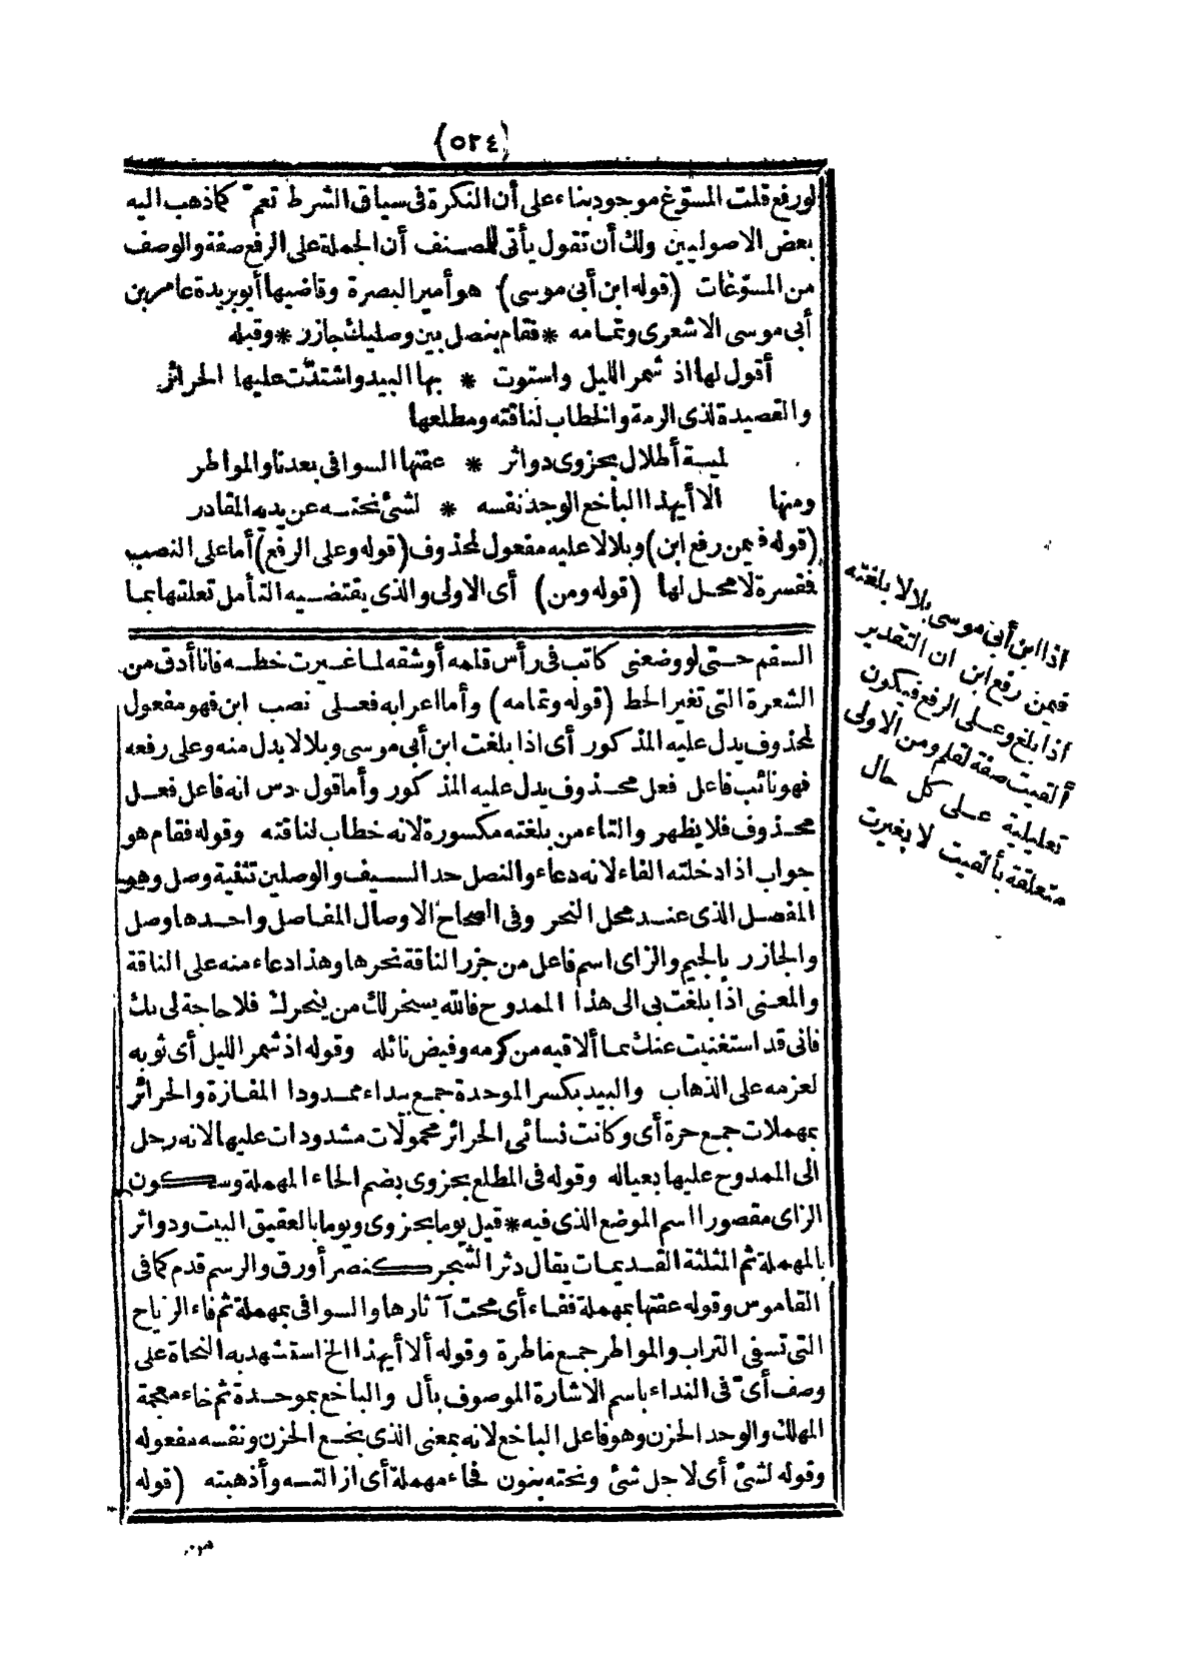 (٥٢٤)
لو رفع قلت المسوّغ موجود بناء على أن النكرة فى سياق الشرط تعمّ كما ذهب اليه
بعض الاصوليين ولك أن تقول يأتى للمصنف أن الجملة على الرفع صفة والوصف
من المسوّغات (قوله ابن أبى موسى) هو أمير البصرة وقاضيها أبو بريدة عامر بن
أبى موسى الاشعرى وتمامه * فقام بنصل بين وصليك جازر * وقبله
أقول لها اذ شمر الليل واستوت * بها البيد واشتدّت عليها الحرائر
والقصيدة لذى الرمة والخطاب لناقته ومطلعها
لمية أطلال بحزوى دواثر * عفتها السوافى بعدنا والمواطر
ومنها ألا أيهذا الباخع الوجد نفسه * لشئ نحته عن يديه المقادر
(قوله فيمن رفع ابن) وبلالا عليه مفعول لمحذوف (قوله وعلى الرفع) أما على النصب
فمفسرة لا محل لها (قوله ومن) أى الاولى والذى يقتضيه التأمل تعلقها بما
السقم حتى لو وضعنى كاتب فى رأس قلمه أو شقه لما غيرت خطه فانا أدق من
الشعرة التى تغير الخط (قوله وتمامه) وأما اعرابه فعلى نصب ابن فهو مفعول
لمحذوف يدل عليه المذكور أى اذا بلغت ابن أبى موسى وبلالا بدل منه وعلى رفعه
فهو نائب فاعل فعل محذوف يدل عليه المذكور وأما قول دس انه فاعل فعل
محذوف فلا يظهر والتاء من بلغته مكسورة لانه خطاب لناقته وقوله فقام هو
جواب اذا دخلته الفاء لانه دعاء والنصل حد السيف والوصلين تثنية وصل وهو
المفصل الذى عند محل النحر وفى الصحاح الاوصال المفاصل واحدها وصل
والجازر بالجيم والزاى اسم فاعل من جزر الناقة نحرها وهذا دعاء منه على الناقة
والمعنى اذا بلغت بى الى هذا الممدوح فالله يسخر لك من ينحرك فلا حاجة لى بك
فانى قد استغنيت عنك بما ألاقيه من كرمه وفيض نائله وقوله اذ شمر الليل أى ثوبه
لعزمه على الذهاب والبيد بكسر الموحدة جمع بيداء ممدودا المفازة والحرائر
بمهملات جمع حرة أى وكانت نسائى الحرائر محمولات مشدودات عليها لانه رحل
الى الممدوح عليها بعياله وقوله فى المطلع بحزوى بضم الحاء المهملة وسكون
الزاى مقصورا اسم الموضع الذى فيه * قيل يوما بحزوى ويوما بالعقيق البيت ودواثر
بالمهملة ثم المثلثة القديمات يقال دثر الشجر كنصر أورق والرسم قدم كما فى
القاموس وقوله عفتها بمهملة ففاء أى محت آثارها والسوافى بمهملة ثم فاء الرياح
التى تسفى التراب والمواطر جمع ماطرة وقوله ألا أيهذا الخ استشهد به النحاة على
وصف أىّ فى النداء باسم الاشارة الموصوف بأل والباخع بموحدة ثم خاء معجمة
المهلك والوجد الحزن وهو فاعل الباخع لانه بمعنى الذى بخع الحزن ونفسه مفعوله
وقوله لشئ أى لاجل شئ ونحته بنون فحاء مهملة أى ازالته وأذهبته (قوله
اذا ابن أبى موسى بلالا بلغته
فيمن رفع ابن ان التقدير
اذا بلغ وعلى الرفع فيكون
ألقيت صفة لقلم ومن الاولى
تعليلية على كل حال
متعلقة بألقيت لا بغيرت